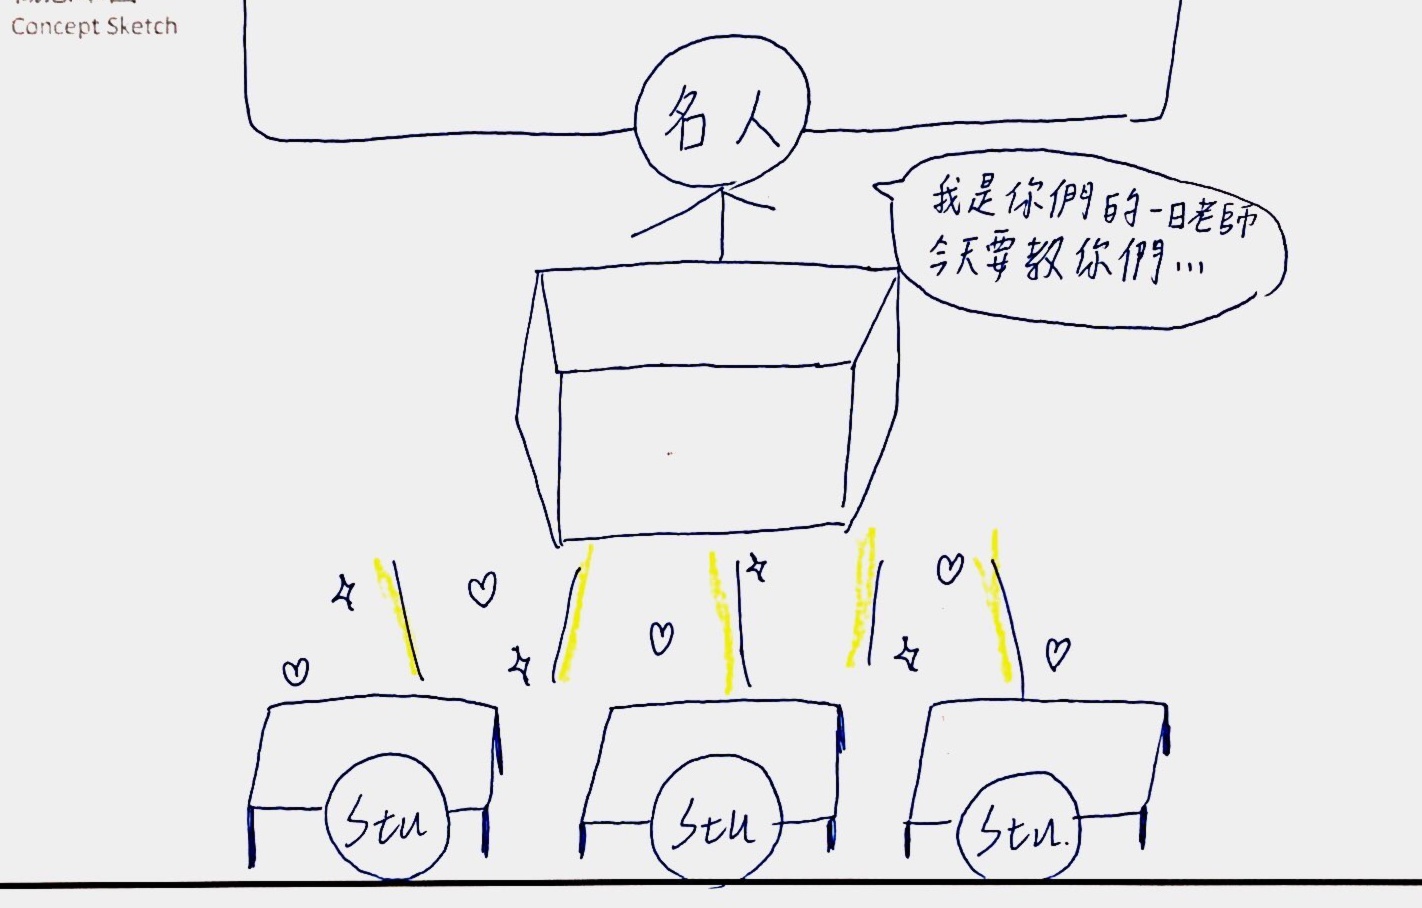 Concept Sketch
名人
我是你們的一日老師
今天要教你們...
Stu
Stu
Stu.